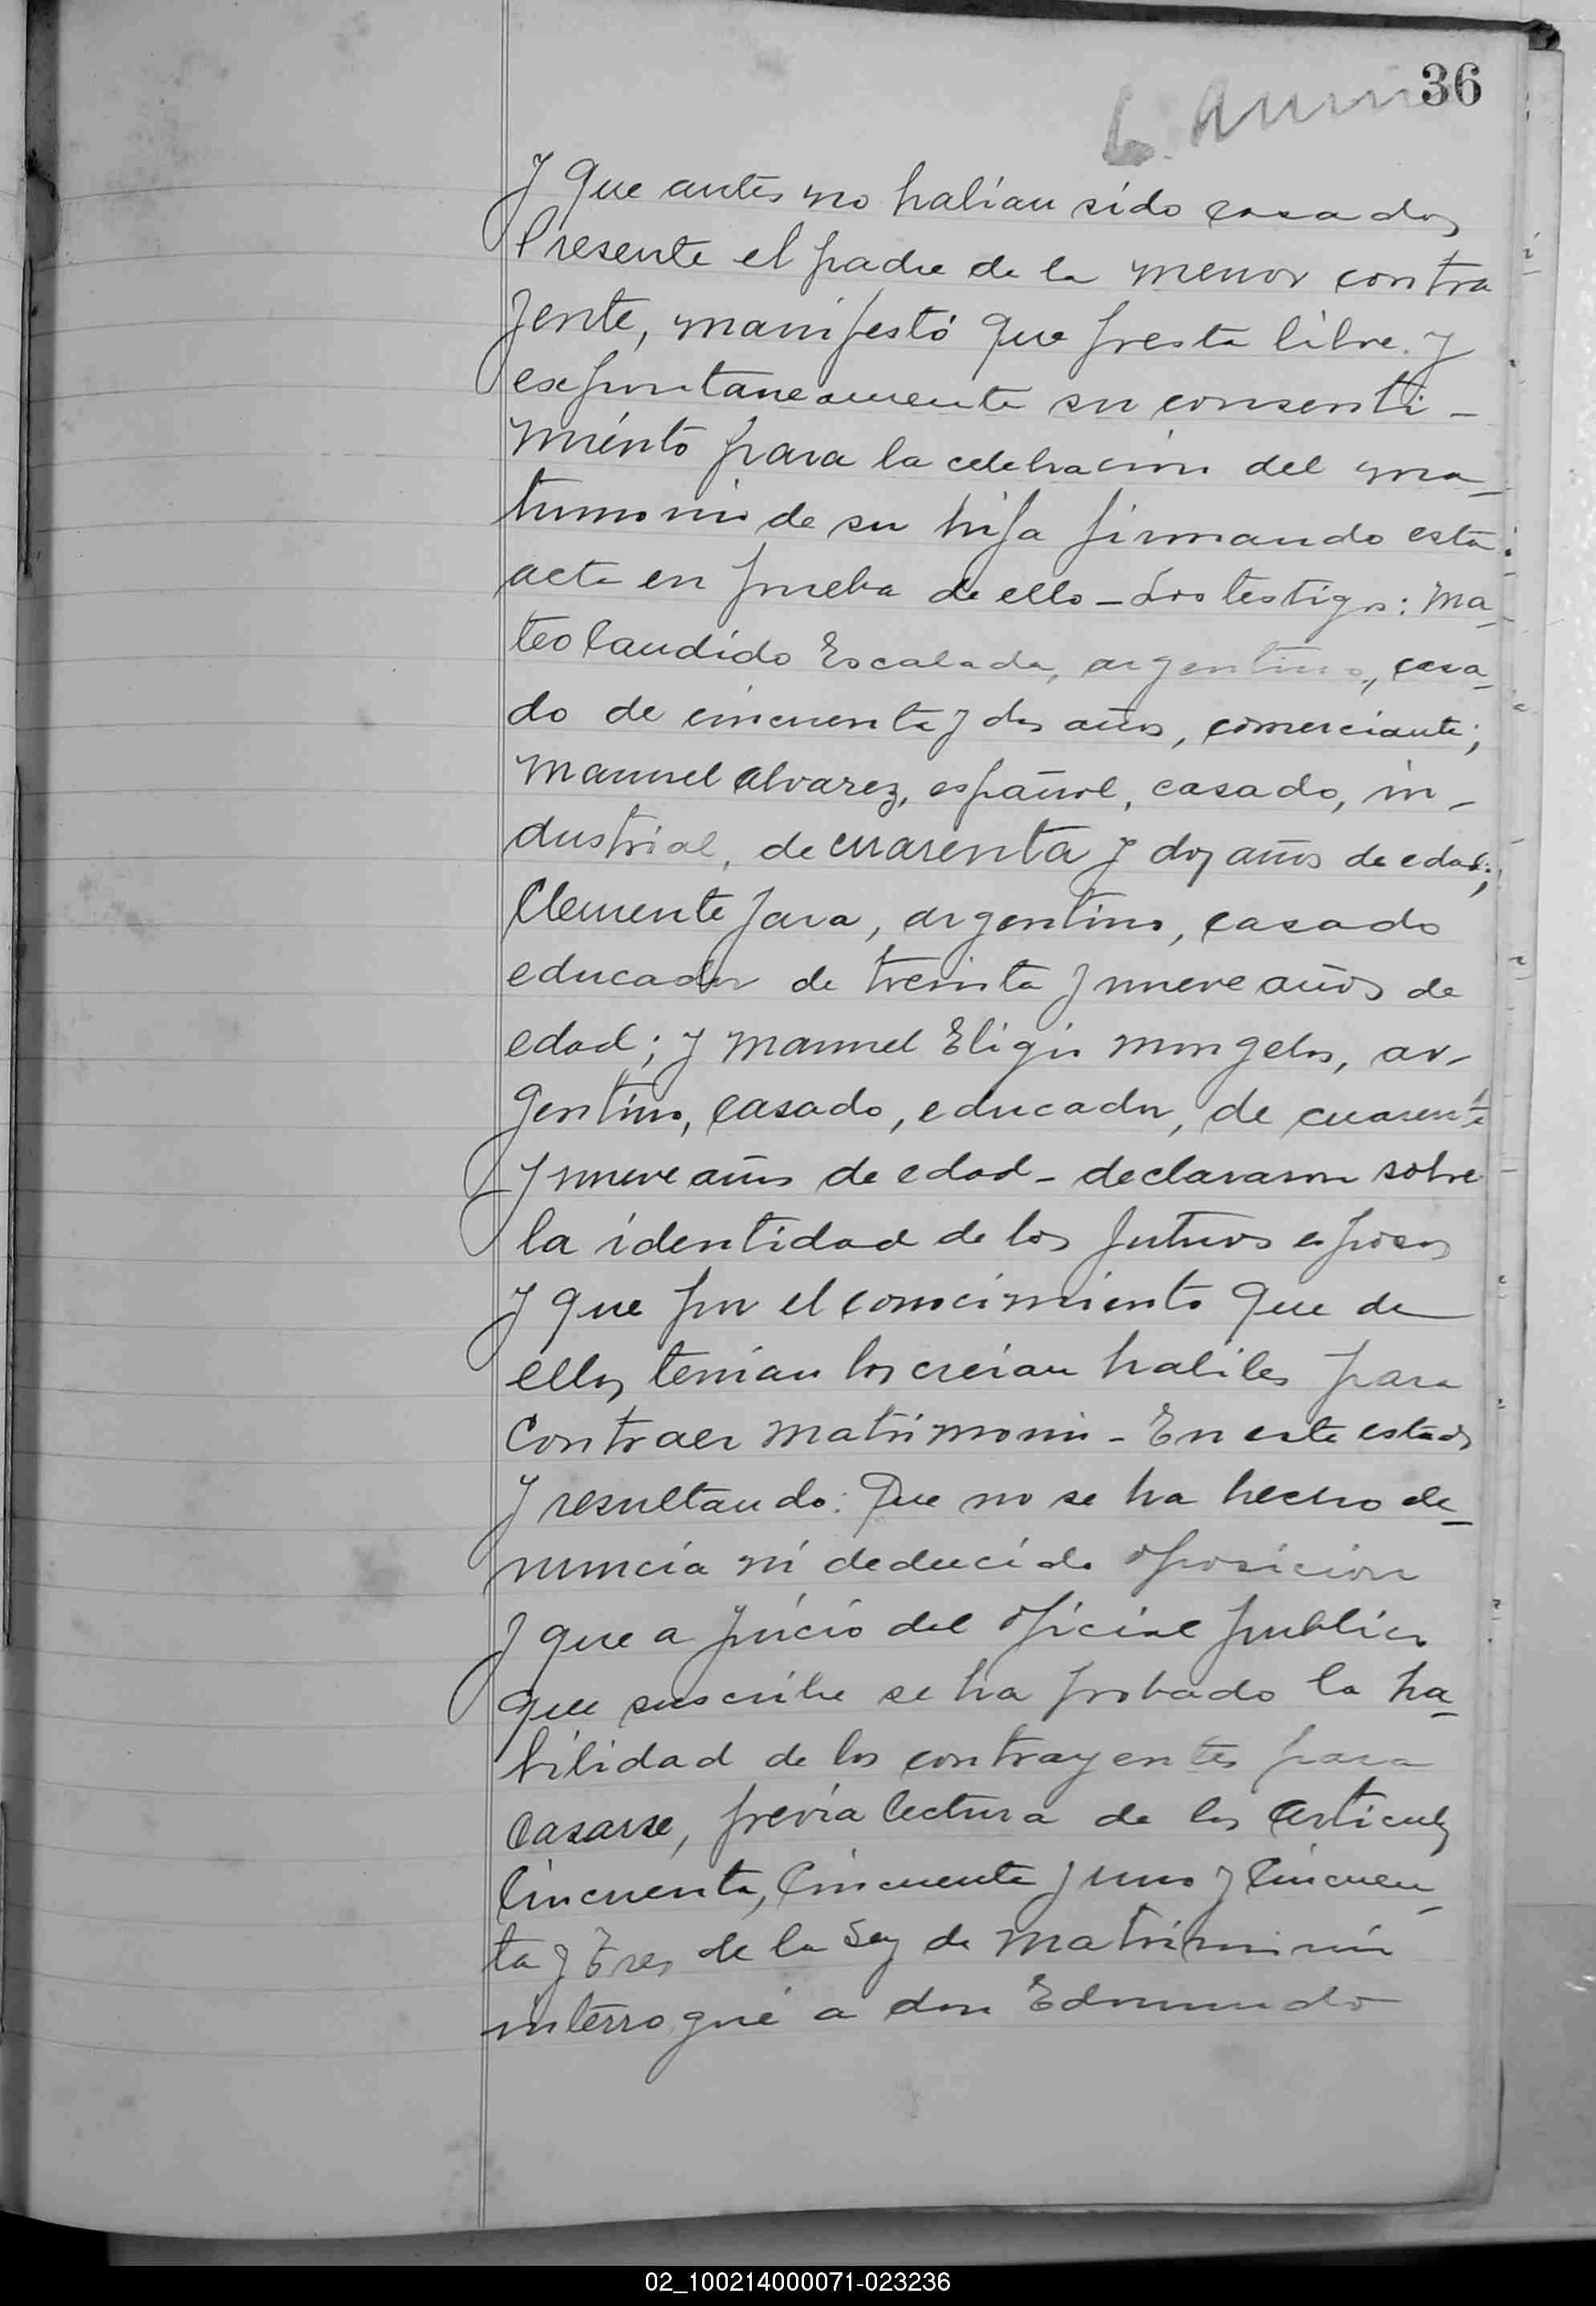 36
y que antes no habian sido casados
Presente el padre de la menor contra
jente, manifestó que presta libre y
expontaneamente su consenti-
miento para la celebracion del ma-
trimonio de su hija firmando esta
acta en prueba de ello - Los testigos: Ma-
teo Candido Escalada, argentino, casa-
do de cincuenta y dos años, comerciante;
Manuel Alvarez, español, casado, in-
dustrial, de cuarenta y dos años de edad;
Clemente Jara, argentino, casado
educador de treinta y nueve años de
edad; y Manuel Eligio Mongelos, ar-
gentino, casado, educador, de cuarenta
y nueve años de edad - declararon sobre
la identidad de los futuros esposos
y que por el conocimiento que de
ellos tenian los creian habiles para
contraer matrimonio - En este estado
y resultando: Que no se ha hecho de-
nuncia ni deducido oposicion
y que a juicio del oficial publico
que suscribe se ha probado la ha-
bilidad de los contrayentes para
casarse, previa lectura de los articulos
Cincuenta, Cincuenta y uno y Cincuen-
ta y Tres de la Ley de Matrimonio
interrogué a don Edmundo
02_100214000071-023236